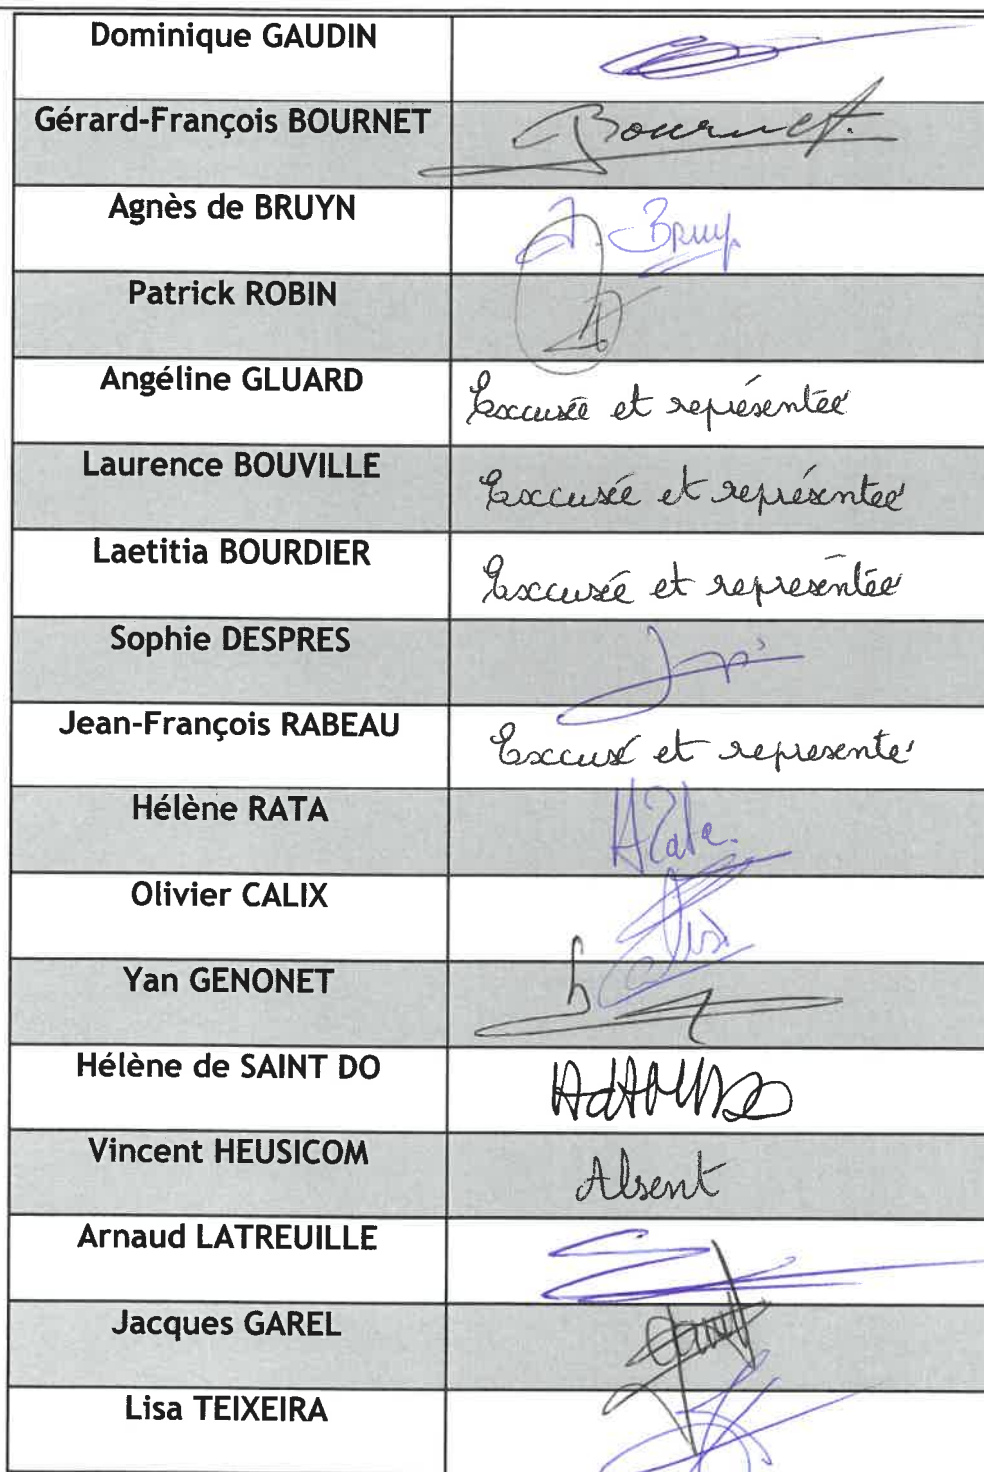 Dominique GAUDIN
Gérard-François BOURNET Bournet.
Agnès de BRUYN A. Bruyn
Patrick ROBIN
Angéline GLUARD Excusée et représentée
Laurence BOUVILLE Excusée et représentée
Laetitia BOURDIER Excusée et représentée
Sophie DESPRES
Jean-François RABEAU Excusé et représenté
Hélène RATA HRata.
Olivier CALIX Calix
Yan GENONET
Hélène de SAINT DO
Vincent HEUSICOM Absent
Arnaud LATREUILLE
Jacques GAREL Garel
Lisa TEIXEIRA